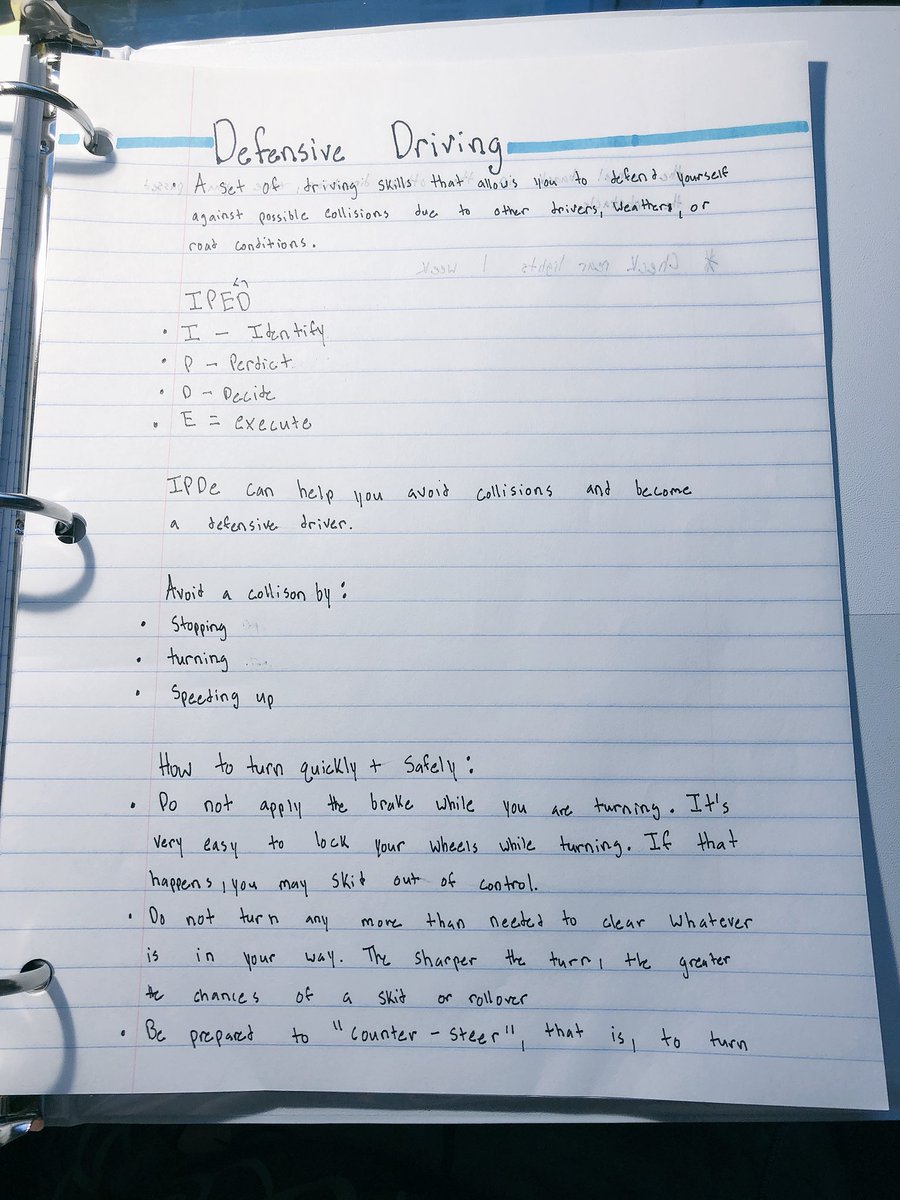 Defensive Driving
• A set of driving skills that allows you to defend yourself
against possible collisions due to other drivers, weathers, or
road conditions.
* Check rear lights 1 week
IPED
• I - Identify
• P - Perdict
• D - Decide
• E = execute
IPDe can help you avoid collisions and become
a defensive driver.
Avoid a collison by:
• Stopping
• turning
• Speeding up
How to turn quickly + Safely:
• Do not apply the brake while you are turning. It's
very easy to lock your wheels while turning. If that
happens, you may skid out of control.
• Do not turn any more than needed to clear whatever
is in your way. The sharper the turn, the greater
the chances of a skid or rollover
• Be prepared to "counter-steer", that is, to turn